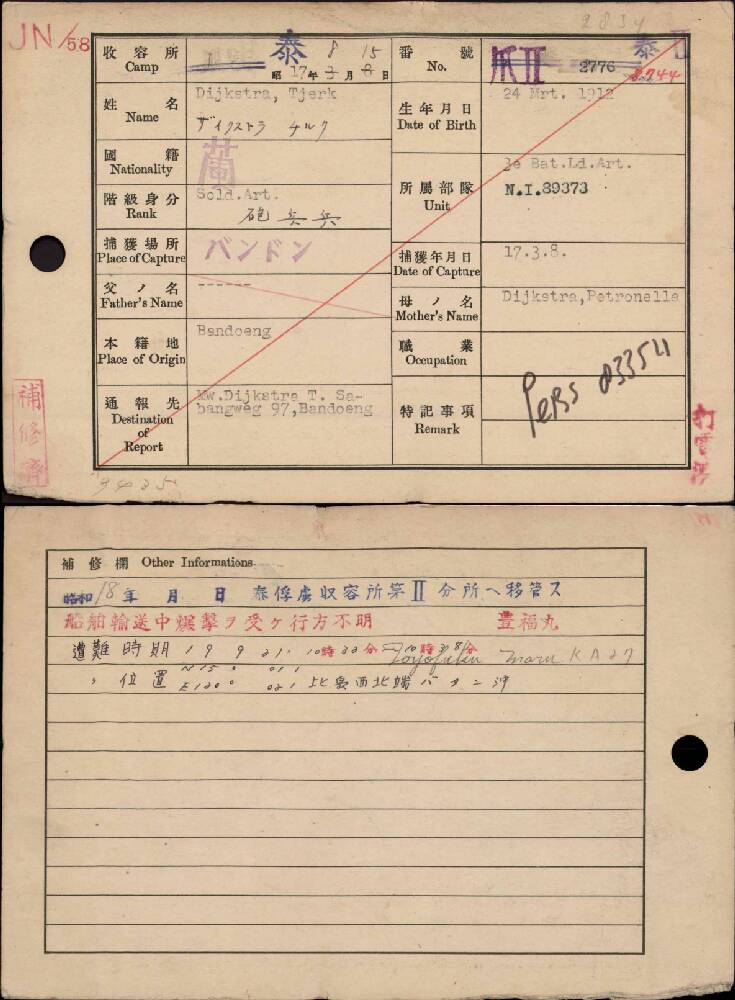 JN/58
2834
收容所 Camp
泰
昭17年 8月 15日
番號 No.
爪II 2776
泰II
8744
姓名 Name
Dijkstra, Tjerk
ザイクストラ チルク
生年月日 Date of Birth
24 Mrt. 1912
國籍 Nationality
蘭
階級身分 Rank
Sold.Art.
砲兵兵
所屬部隊 Unit
3e Bat.Ld.Art.
N.I.89373
捕獲場所 Place of Capture
バンドン
捕獲年月日 Date of Capture
17.3.8.
父ノ名 Father's Name
------
母ノ名 Mother's Name
Dijkstra,Petronella
本籍地 Place of Origin
Bandoeng
職業 Occupation
通報先 Destination of Report
Mw.Dijkstra T. Sa-
bangweg 97,Bandoeng
特記事項 Remark
Pers 033541
補修濟
9435
補修欄 Other Informations
昭和18年 月 日 泰俘虜収容所第II分所へ移管ス
船舶輸送中爆撃ヲ受ケ行方不明 豊福丸
遭難時期 19 9 21. 10時
Toyofuku Maru KA27
〃 位置 N15° E120° 比島西北端バタン沖